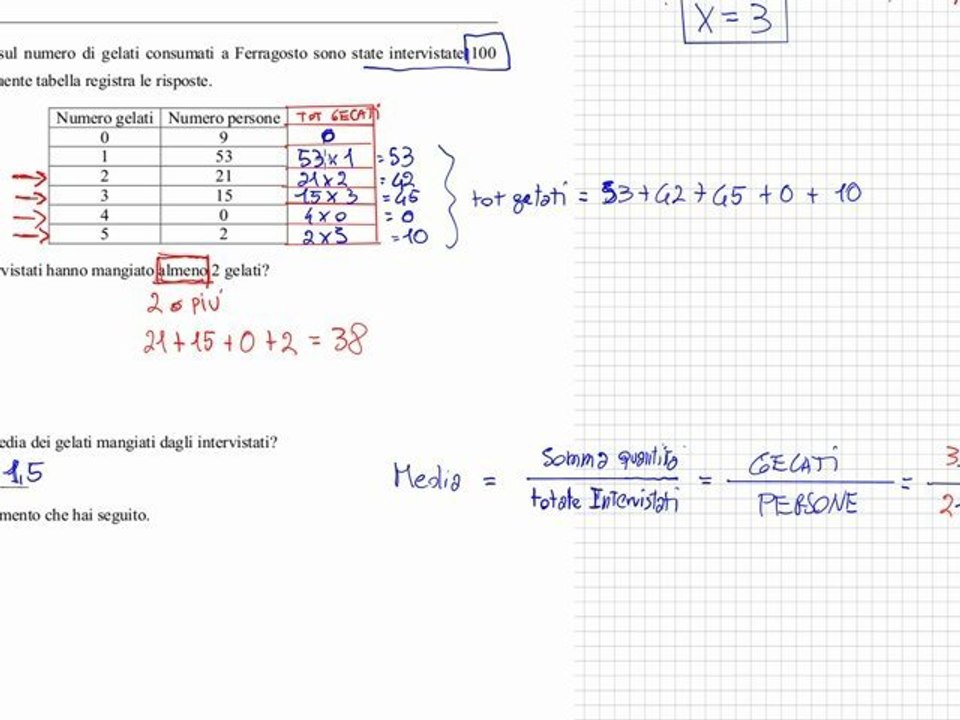 x = 3
sul numero di gelati consumati a Ferragosto sono state intervistate 100
nente tabella registra le risposte.
Numero gelati Numero persone TOT GELATI
0 9 0
1 53 53 x 1 = 53
2 21 21 x 2 = 42
3 15 15 x 3 = 45
4 0 4 x 0 = 0
5 2 2 x 5 = 10
tot gelati = 53 + 42 + 45 + 0 + 10
rvistati hanno mangiato almeno 2 gelati?
2 o più
21 + 15 + 0 + 2 = 38
edia dei gelati mangiati dagli intervistati?
1,5
Media = somma quantità / totale Intervistati = GELATI / PERSONE =
mento che hai seguito.